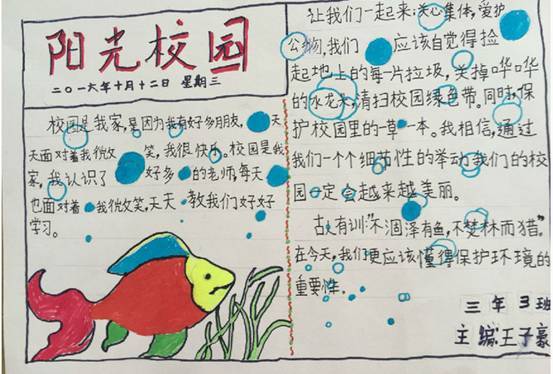 阳光校园
二〇一六年十月十二日 星期三
校园是我家,是因为我有好多朋友,天
天面对着我微笑,我很快乐。校园是我
家,我认识了好多的老师,每天
也面对着我微笑,天天教我们好好
学习。
让我们一起来:关心集体,爱护
公物,我们应该自觉得捡
起地上的每一片垃圾,关掉哗哗
的水龙头,清扫校园绿色带。同时,保
护校园里的一草一木。我相信,通过
我们一个个细节性的举动,我们的校
园一定会越来越美丽。
古人有训:"不涸泽有鱼,不焚林而猎。"
在今天,我们更应该懂得保护环境的
重要性。
三年3班
主编:王子豪